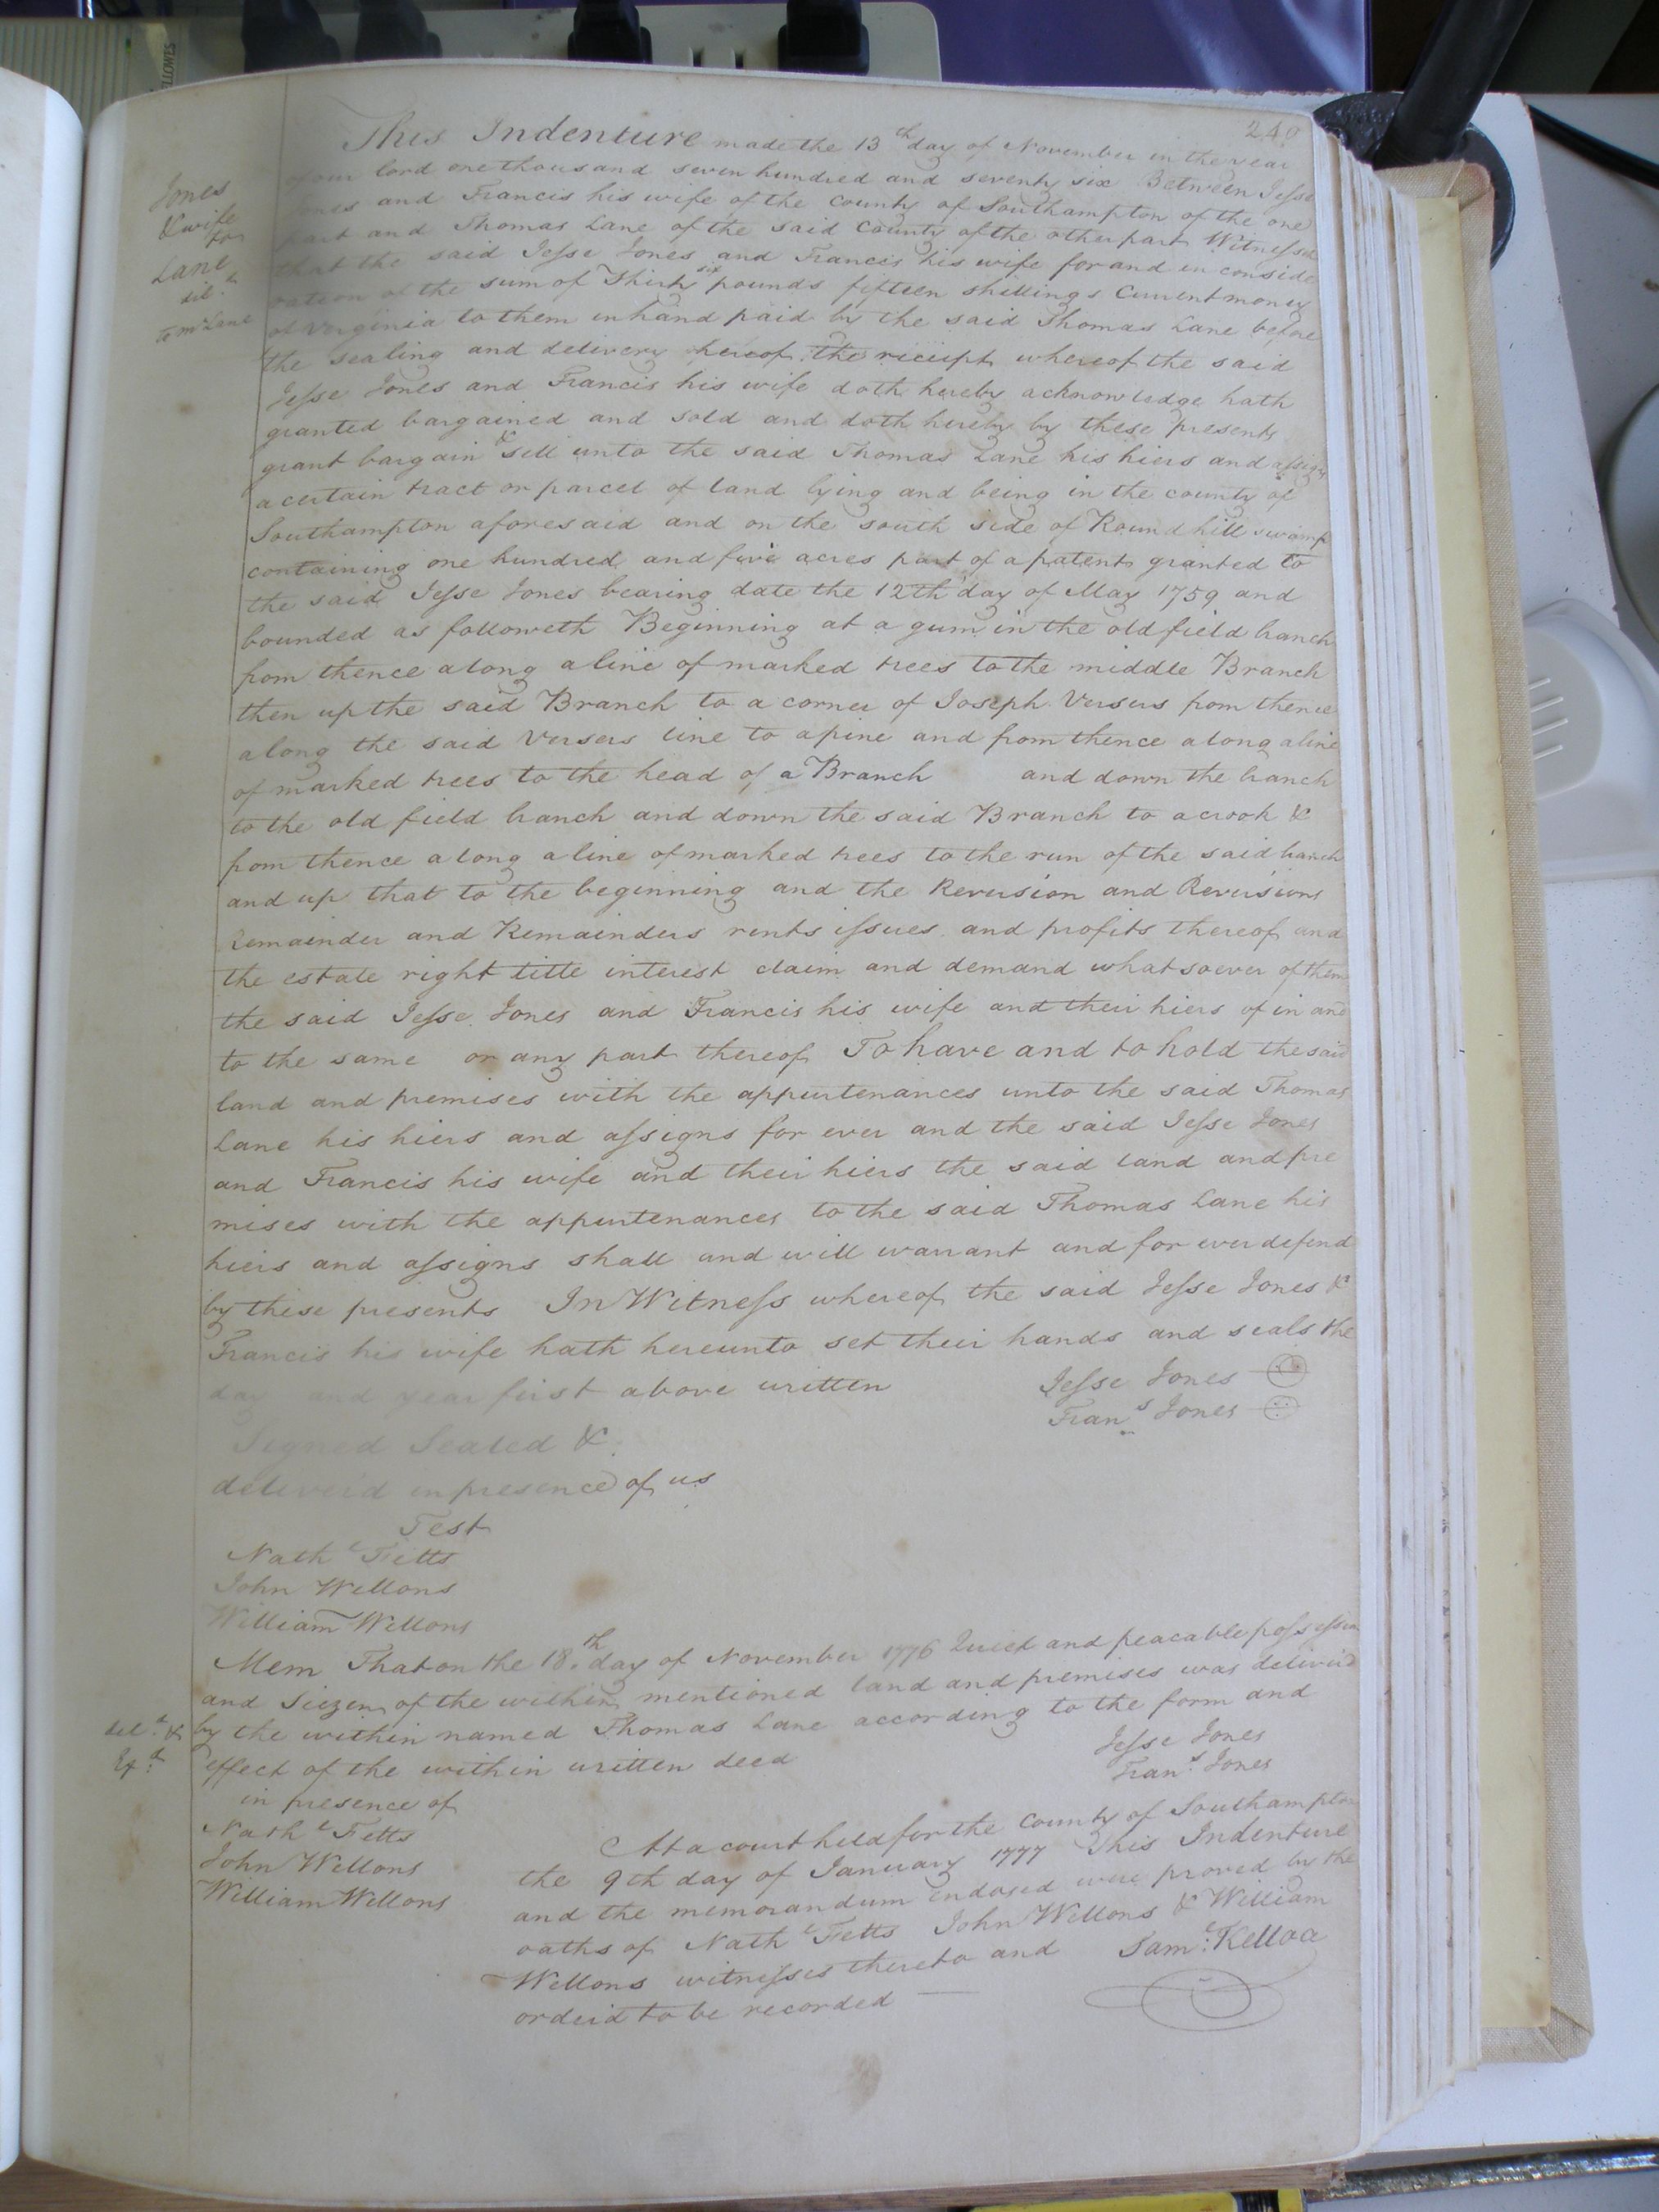 240
This Indenture made the 13th day of November in the year
of our lord one thousand seven hundred and seventy six Between Jesse
Jones and Francis his wife of the County of Southampton of the one
part and Thomas Lane of the said County of the other part Witnesseth
that the said Jesse Jones and Francis his wife for and in conside
ration of the sum of Thirty six pounds fifteen shillings Current money
of Virginia to them in hand paid by the said Thomas Lane before
the sealing and delivery hereof the receipt whereof the said
Jesse Jones and Francis his wife doth hereby acknowledge hath
granted bargained and sold and doth hereby by these presents
grant bargain & sell unto the said Thomas Lane his hiers and assigns
a certain tract or parcel of land lying and being in the county of
Southampton aforesaid and on the south side of Round hill swamp
containing one hundred and five acres part of a patent granted to
the said Jesse Jones bearing date the 12th day of May 1759 and
bounded as followeth Beginning at a gum in the old field branch
from thence along a line of marked trees to the middle Branch
then up the said Branch to a corner of Joseph Versers from thence
along the said Versers line to a pine and from thence along a line
of marked trees to the head of a Branch and down the branch
to the old field branch and down the said Branch to a crook &
from thence along a line of marked trees to the run of the said branch
and up that to the beginning and the Reversion and Reversions
Remainder and Remainders rents issues and profits thereof and
the estate right title interest claim and demand whatsoever of them
the said Jesse Jones and Francis his wife and their hiers of in and
to the same or any part thereof To have and to hold the said
land and premises with the appurtenances unto the said Thomas
Lane his hiers and assigns for ever and the said Jesse Jones
and Francis his wife and their hiers the said land and pre
mises with the appurtenances to the said Thomas Lane his
hiers and assigns shall and will warrant and for ever defend
by these presents In Witness whereof the said Jesse Jones &
Francis his wife hath hereunto set their hands and seals the
day and year first above written
Jesse Jones
Frans Jones
Signed Sealed &
deliver'd in presence of us
Test
Nathl Fetts
John Wellons
William Wellons
Mem That on the 18th day of November 1776 Quiet and peacable possession
and Siezen of the within mentioned land and premises was deliverd
by the within named Thomas Lane according to the form and
effect of the within written deed
Jesse Jones
Frans Jones
in presence of
Nathl Fetts
John Wellons
William Wellons
At a court held for the County of Southampton
the 9th day of January 1777 This Indenture
and the memorandum endosed were proved by the
oaths of Nathl Fetts John Wellons & William
Wellons witnesses thereto and
orderd to be recorded
Saml Kelloa
Jones
& wife
to
Lane
to Mr Lane